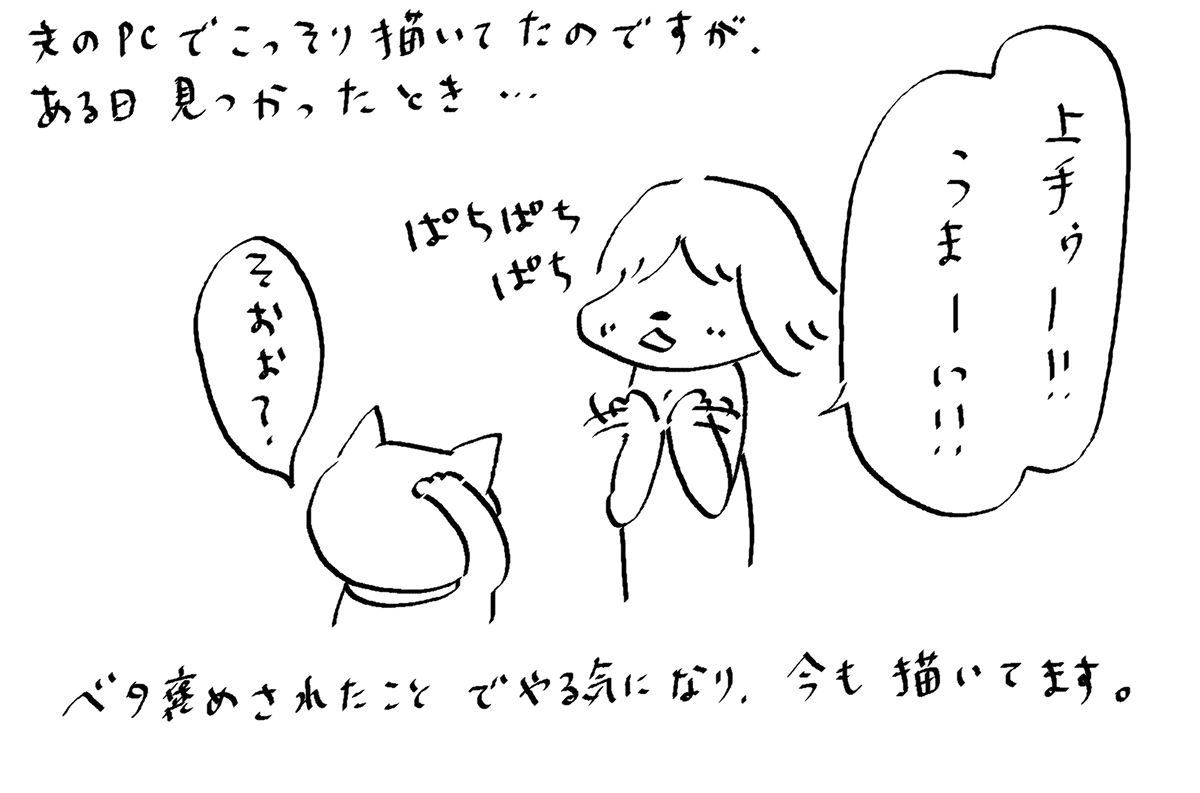 夫のPCでこっそり描いてたのですが、
ある日見つかったとき…
上手ゥー!!
うまーい!!
ぱちぱち
ぱち
そおお?
ベタ褒めされたことでやる気になり、今も描いてます。